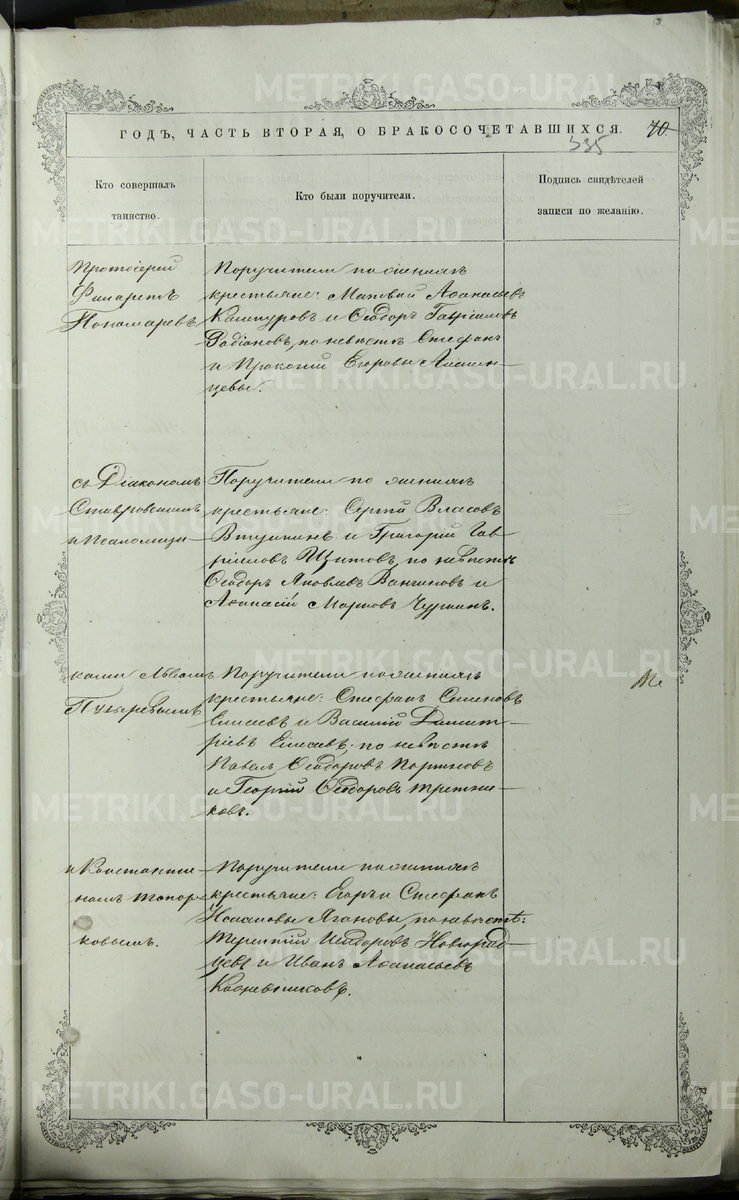 METRIKI.GASO-URAL.RU
ГОДЪ, ЧАСТЬ ВТОРАЯ, О БРАКОСОЧЕТАВШИХСЯ. 70
335
Кто совершалъ таинство.
Кто были поручители.
Подпись свидѣтелей записи по желанію.
Протоіерей
Филаретъ
Пономаревъ
Поручители по женихѣ
крестьяне: Матвѣй Аѳанасьевъ
и Ѳеодоръ Гавріиловъ
по невѣстѣ Стефанъ
и Прокопій Егоровы
съ Діакономъ
Ставровскимъ
и Псаломщи-
Поручители по женихѣ
крестьяне: Сергій Власовъ
Втушинъ и Григорій Гав-
ріиловъ Щитовъ, по невѣстѣ
Ѳеодоръ Яковлевъ и
Аѳанасій
ками
Поручители по женихѣ
крестьяне: Стефанъ Семеновъ
Елисеевъ и Василій Димит-
ріевъ Елисеевъ; по невѣстѣ
Павелъ Ѳеодоровъ
и Георгій Ѳеодоровъ Третни-
ковъ.
и Константи-
номъ Топор-
ковымъ.
Поручители по женихѣ
крестьяне: Егоръ и Стефанъ
по невѣстѣ:
Терентій Новград-
цевъ и Иванъ Аѳанасьевъ
Кожевниковъ.